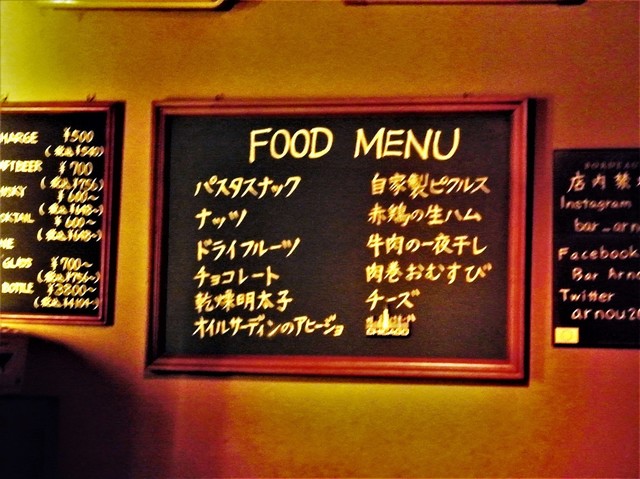 HARGE ¥500
(税込¥540)
FTBEER ¥700
(税込¥756)
¥600〜
(税込¥648〜)
CKTAIL ¥600〜
(税込¥648〜)
NE
GLASS ¥700〜
(税込¥756〜)
BOTTLE ¥3800〜
(税込¥4104〜)
FOOD MENU
パスタスナック
ナッツ
ドライフルーツ
チョコレート
乾燥明太子
オイルサーディンのアヒージョ
自家製ピクルス
赤鶏の生ハム
牛肉の一夜干し
肉巻おむすび
チーズ
CHICAGO
店内禁
Instagram
bar_arn
Facebook
Bar Arn
Twitter
arnou20